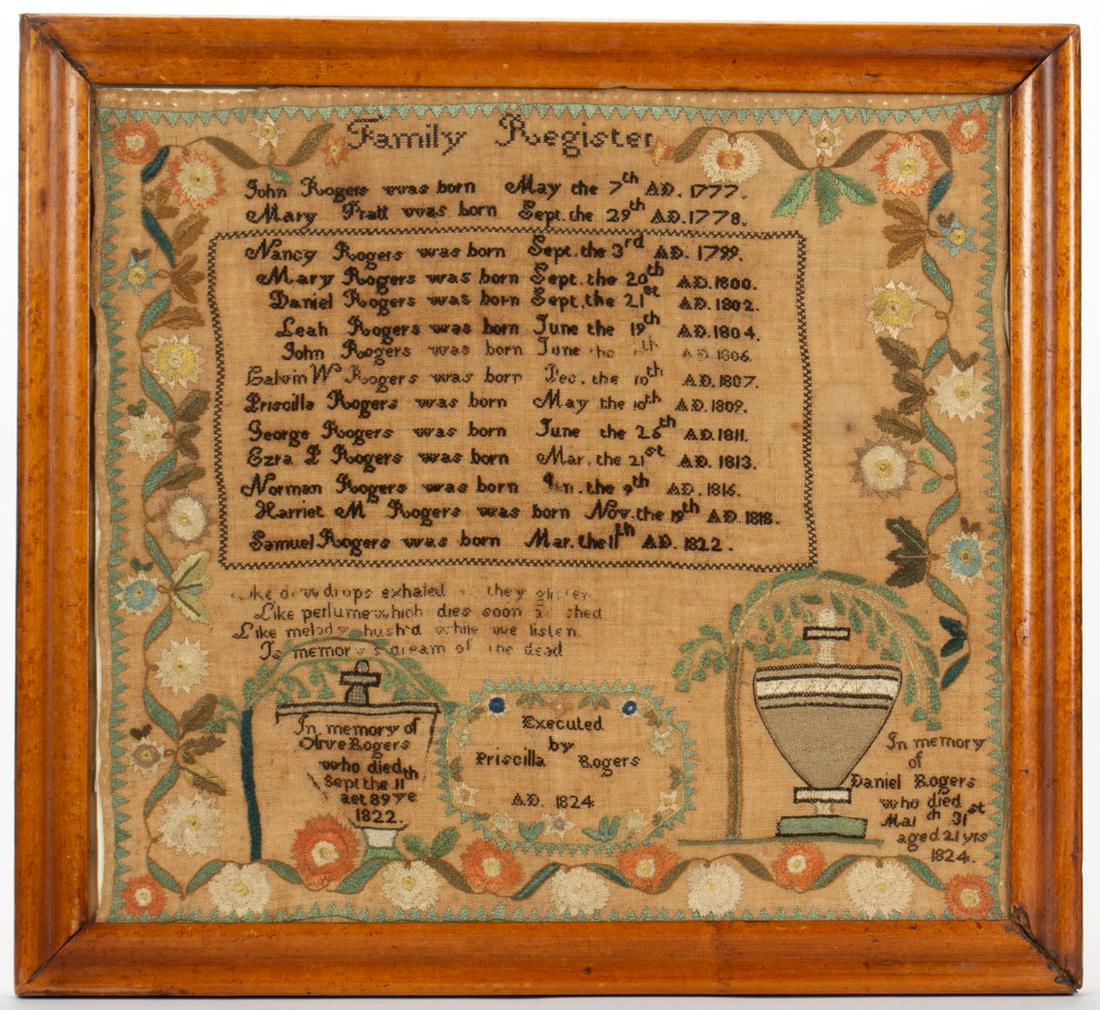 Family Register
John Rogers was born May the 7th AD. 1777.
Mary Pratt was born Sept. the 29th AD. 1778.
Nancy Rogers was born Sept. the 3rd AD. 1799.
Mary Rogers was born Sept. the 20th AD. 1800.
Daniel Rogers was born Sept. the 21st AD. 1802.
Leah Rogers was born June the 19th AD. 1804.
John Rogers was born June the AD. 1806.
Calvin W Rogers was born Dec. the 10th AD. 1807.
Priscilla Rogers was born May the 10th AD. 1809.
George Rogers was born June the 26th AD. 1811.
Ezra P Rogers was born Mar. the 21st AD. 1813.
Norman Rogers was born Jan. the 9th AD. 1816.
Harriet M Rogers was born Nov. the 19th AD. 1818.
Samuel Rogers was born Mar. the 11th AD. 1822.
Like dewdrops exhaled they glisten
Like perfume which dies soon shed
Like melody hush'd while we listen
Is memory's dream of the dead
In memory of
Olive Rogers
who died
Sept the 11th
aet 89 ye
1822.
Executed
by
Priscilla Rogers
AD. 1824
In memory
of
Daniel Rogers
who died
March 31st
aged 21 yrs
1824.